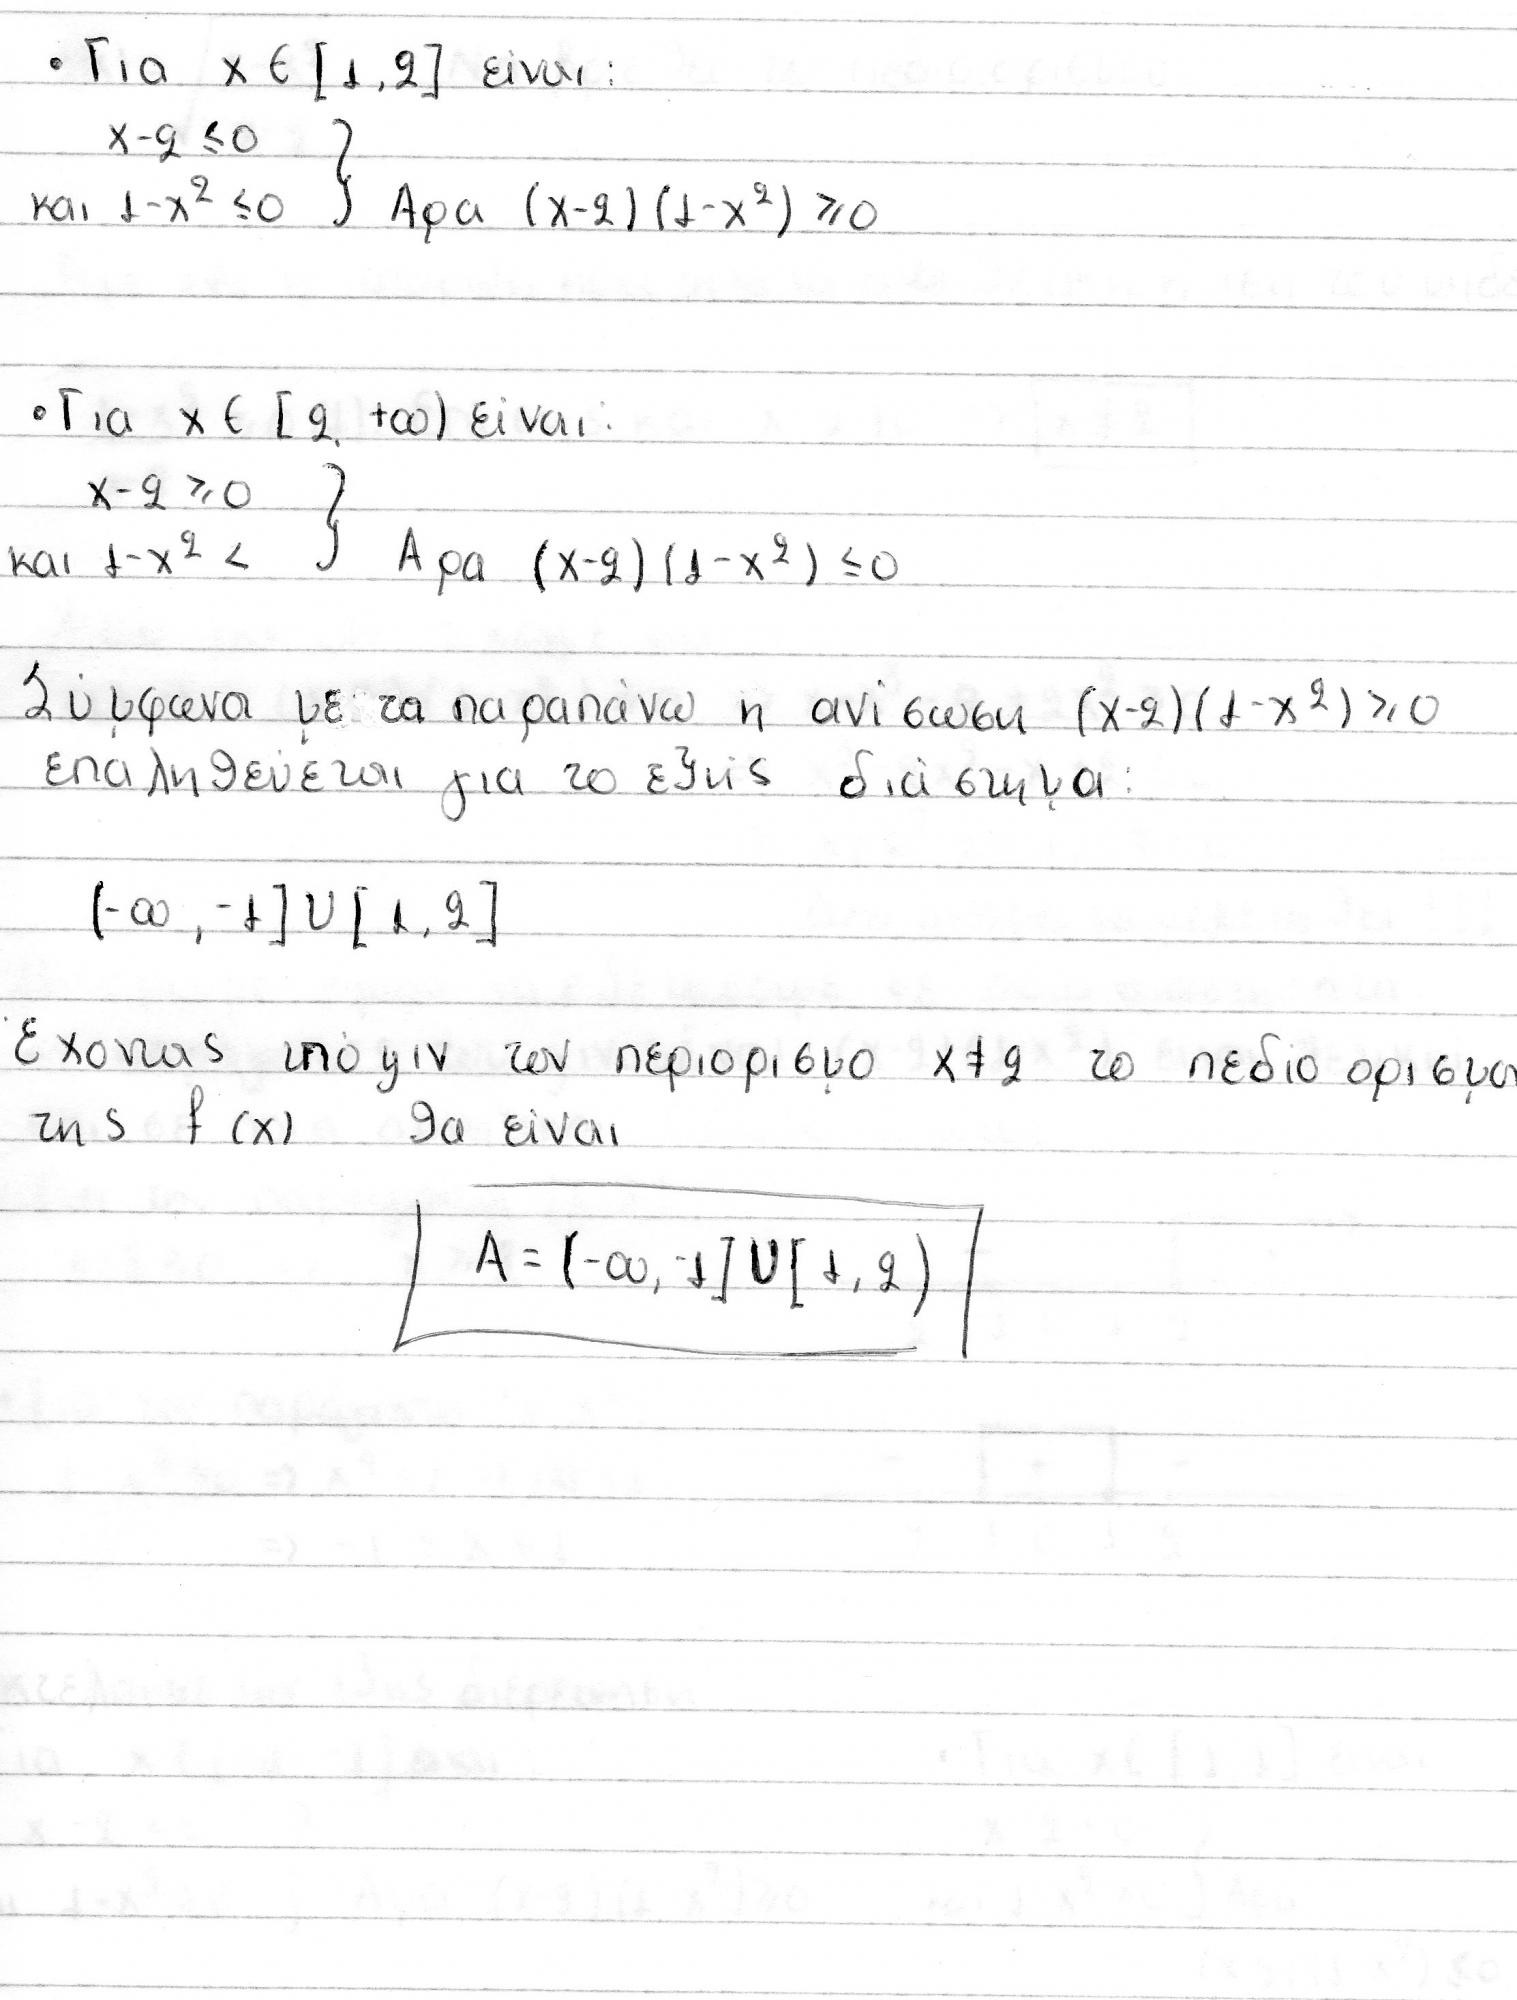 • Για x ∈ [1,2] είναι:
x-2 ≤0
και 1-x² ≤0 } Αρα (x-2)(1-x²) ≥0
• Για x ∈ [2, +∞) είναι:
x-2 ≥0
και 1-x² < } Αρα (x-2)(1-x²) ≤0
Σύμφωνα με τα παραπάνω η ανίσωση (x-2)(1-x²) ≥0
επαληθεύεται για το εξής διάστημα:
(-∞, -1]∪[1, 2]
Έχοντας υπόψιν τον περιορισμο x≠2 το πεδίο ορισμου
της f(x) θα είναι
A = (-∞, -1]∪[1, 2)